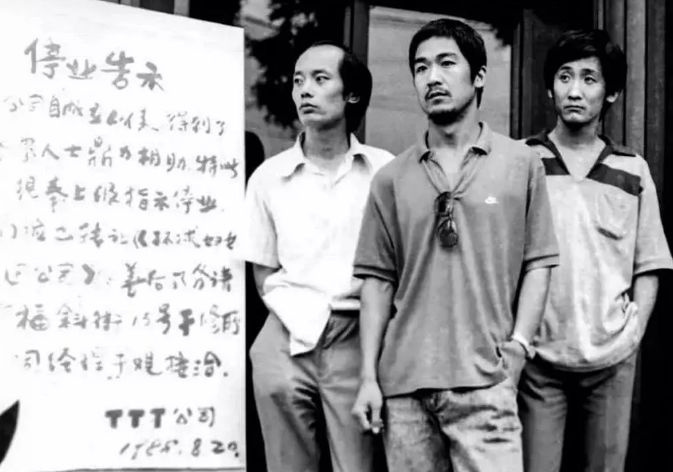 停业告示
公司自成立以来,得到了
各界人士鼎力相助,特此
现奉上级指示停业,
门市已转让《环球妇女
公司》,善后
福斜街15号干修所
司经理于观接洽.
TTT公司
1985.8.20.